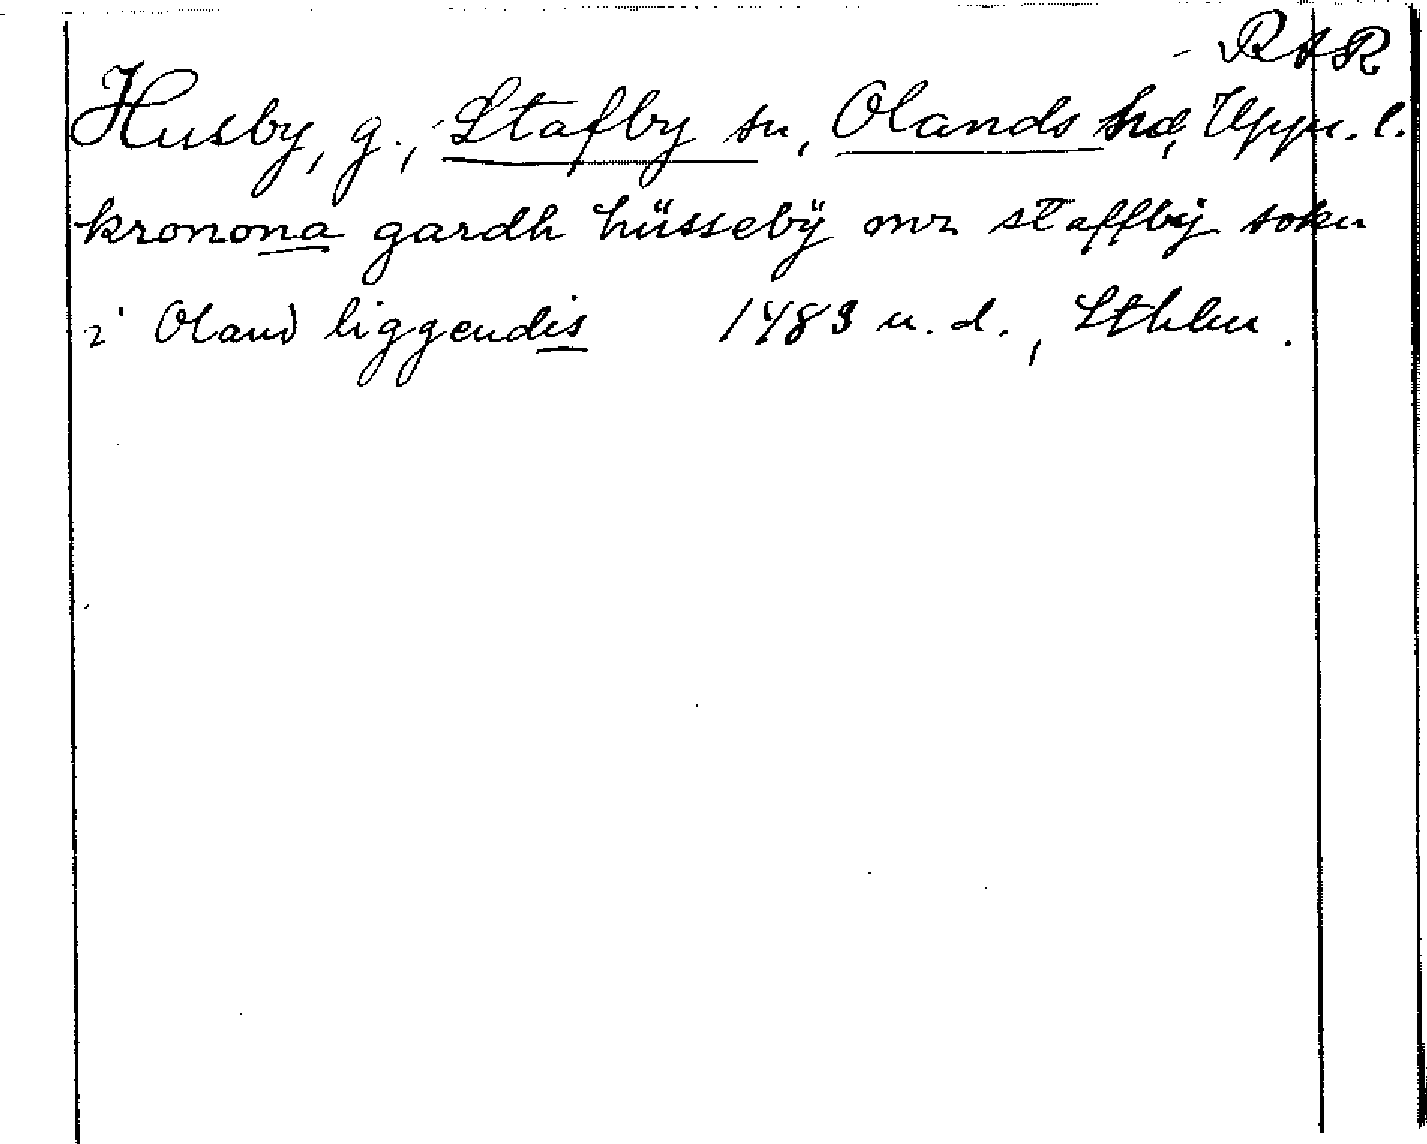 RAR
Husby, g., Stafby sn, Olands hd, Uppu. l.
kronona gardh hüssebÿ mz staffbÿ sokn
i Oland liggendis 1483 u. d., Sthlm.